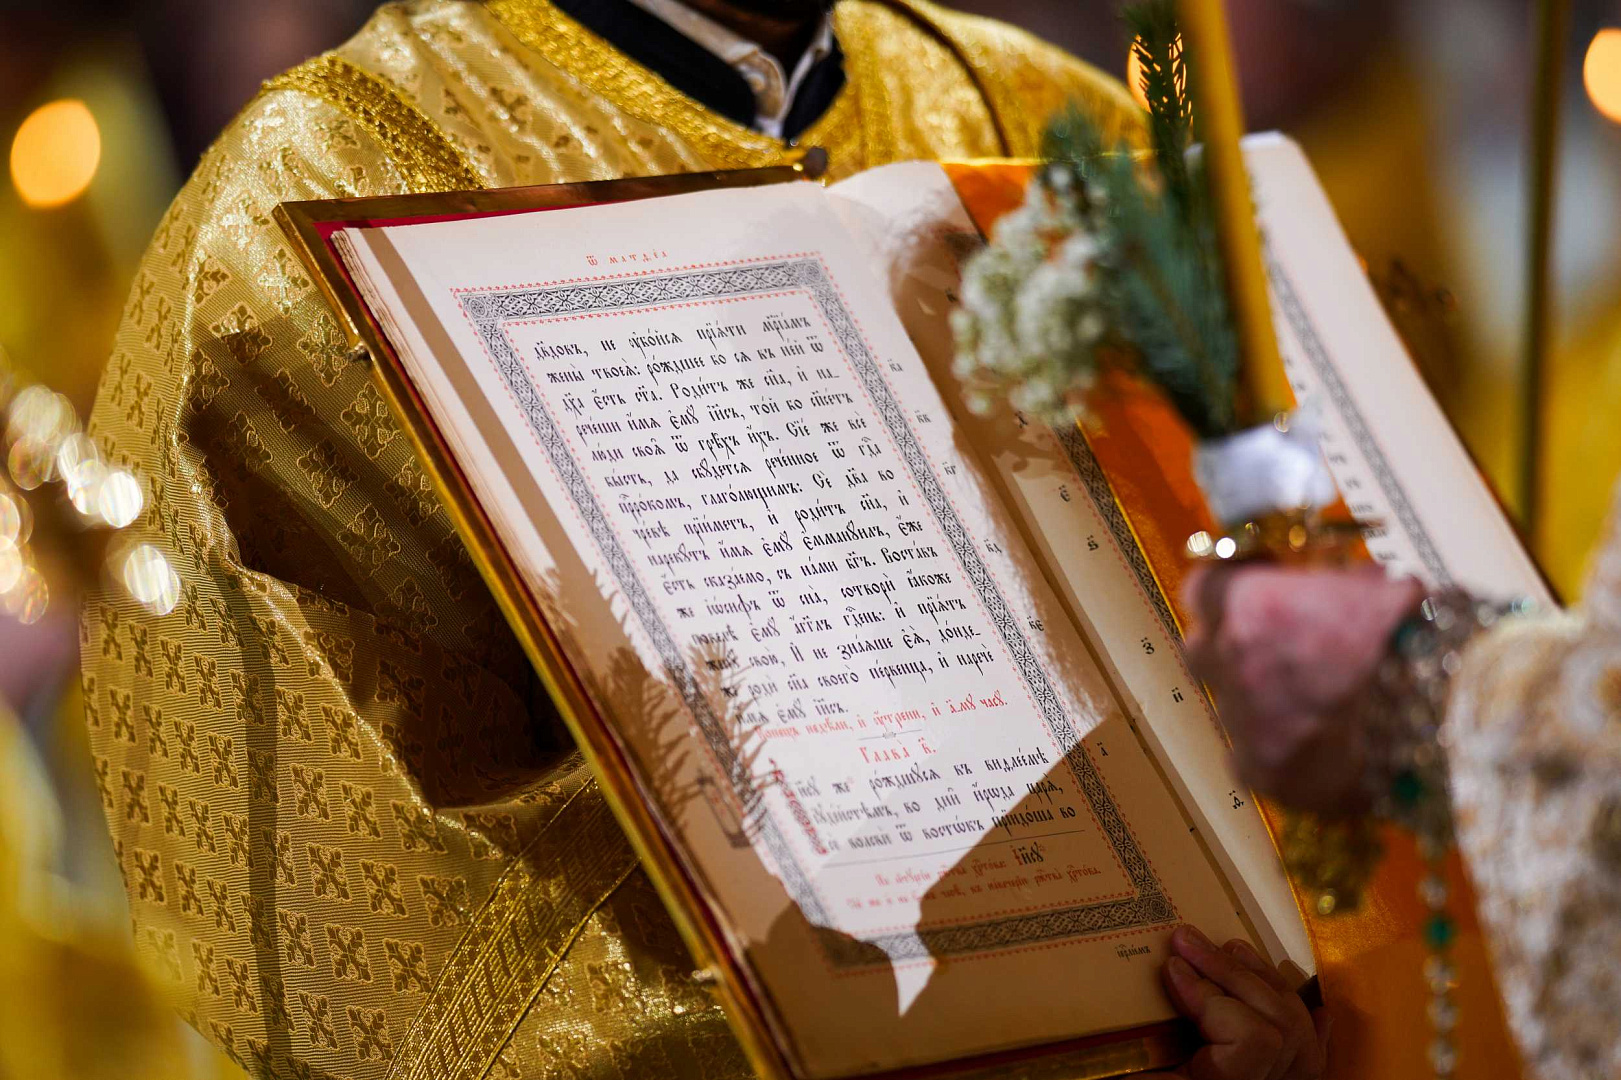 Ѿ матѳеа
дв҃довъ, не ᲂу҆бо́йсѧ прїѧ́ти мр҃їа́мъ
жены̀ твоеѧ̀: ро́ждшеесѧ бо въ не́й ѿ
дх҃а є҆́сть ст҃а. Роди́тъ же сн҃а, и҆ на-
рече́ши и҆́мѧ є҆мꙋ̀ і҆и҃съ, то́й бо сп҃се́тъ
лю́ди своѧ̑ ѿ грѣ̑хъ и҆́хъ. Сїе́ же всѐ
бы́сть, да сбꙋ́детсѧ рече́нное ѿ гдⷭ҇а
прⷪ҇ро́комъ, глаго́лющимъ: Сѐ дв҃а во
чре́вѣ прїи́метъ, и҆ роди́тъ сн҃а, и҆
нарекꙋ́тъ и҆́мѧ є҆мꙋ̀ є҆мманꙋ́илъ, є҆́же
є҆́сть сказа́емо, съ на́ми бг҃ъ. Воста́въ
же і҆ѡ́сифъ ѿ сна̀, сотворѝ ꙗ҆́коже
повелѣ̀ є҆мꙋ̀ а҆́гг҃лъ гдⷭ҇ень: и҆ прїѧ́тъ
женꙋ̀ свою̀, И҆ не зна́ѧше є҆ѧ̀, до́нде-
же родѝ сн҃а своего̀ пе́рвенца, и҆ наречѐ
и҆́мѧ є҆мꙋ̀ і҆и҃съ.
Коне́цъ недѣ́ли, и҆ ᲂу҆́трени, и҆ а҆́мꙋ часꙋ̀.
Глава̀ в҃.
І҆и҃сꙋ же ро́ждшꙋсѧ въ виѳлее́мѣ
і҆ꙋде́йстѣмъ, во дни̑ и҆́рѡда царѧ̀,
сѐ волсвѝ ѿ востѡ́къ прїидо́ша во
і҆ерⷭ҇ли́мъ
к҃а
к҃в
к҃г
к҃д
к҃є
а҃